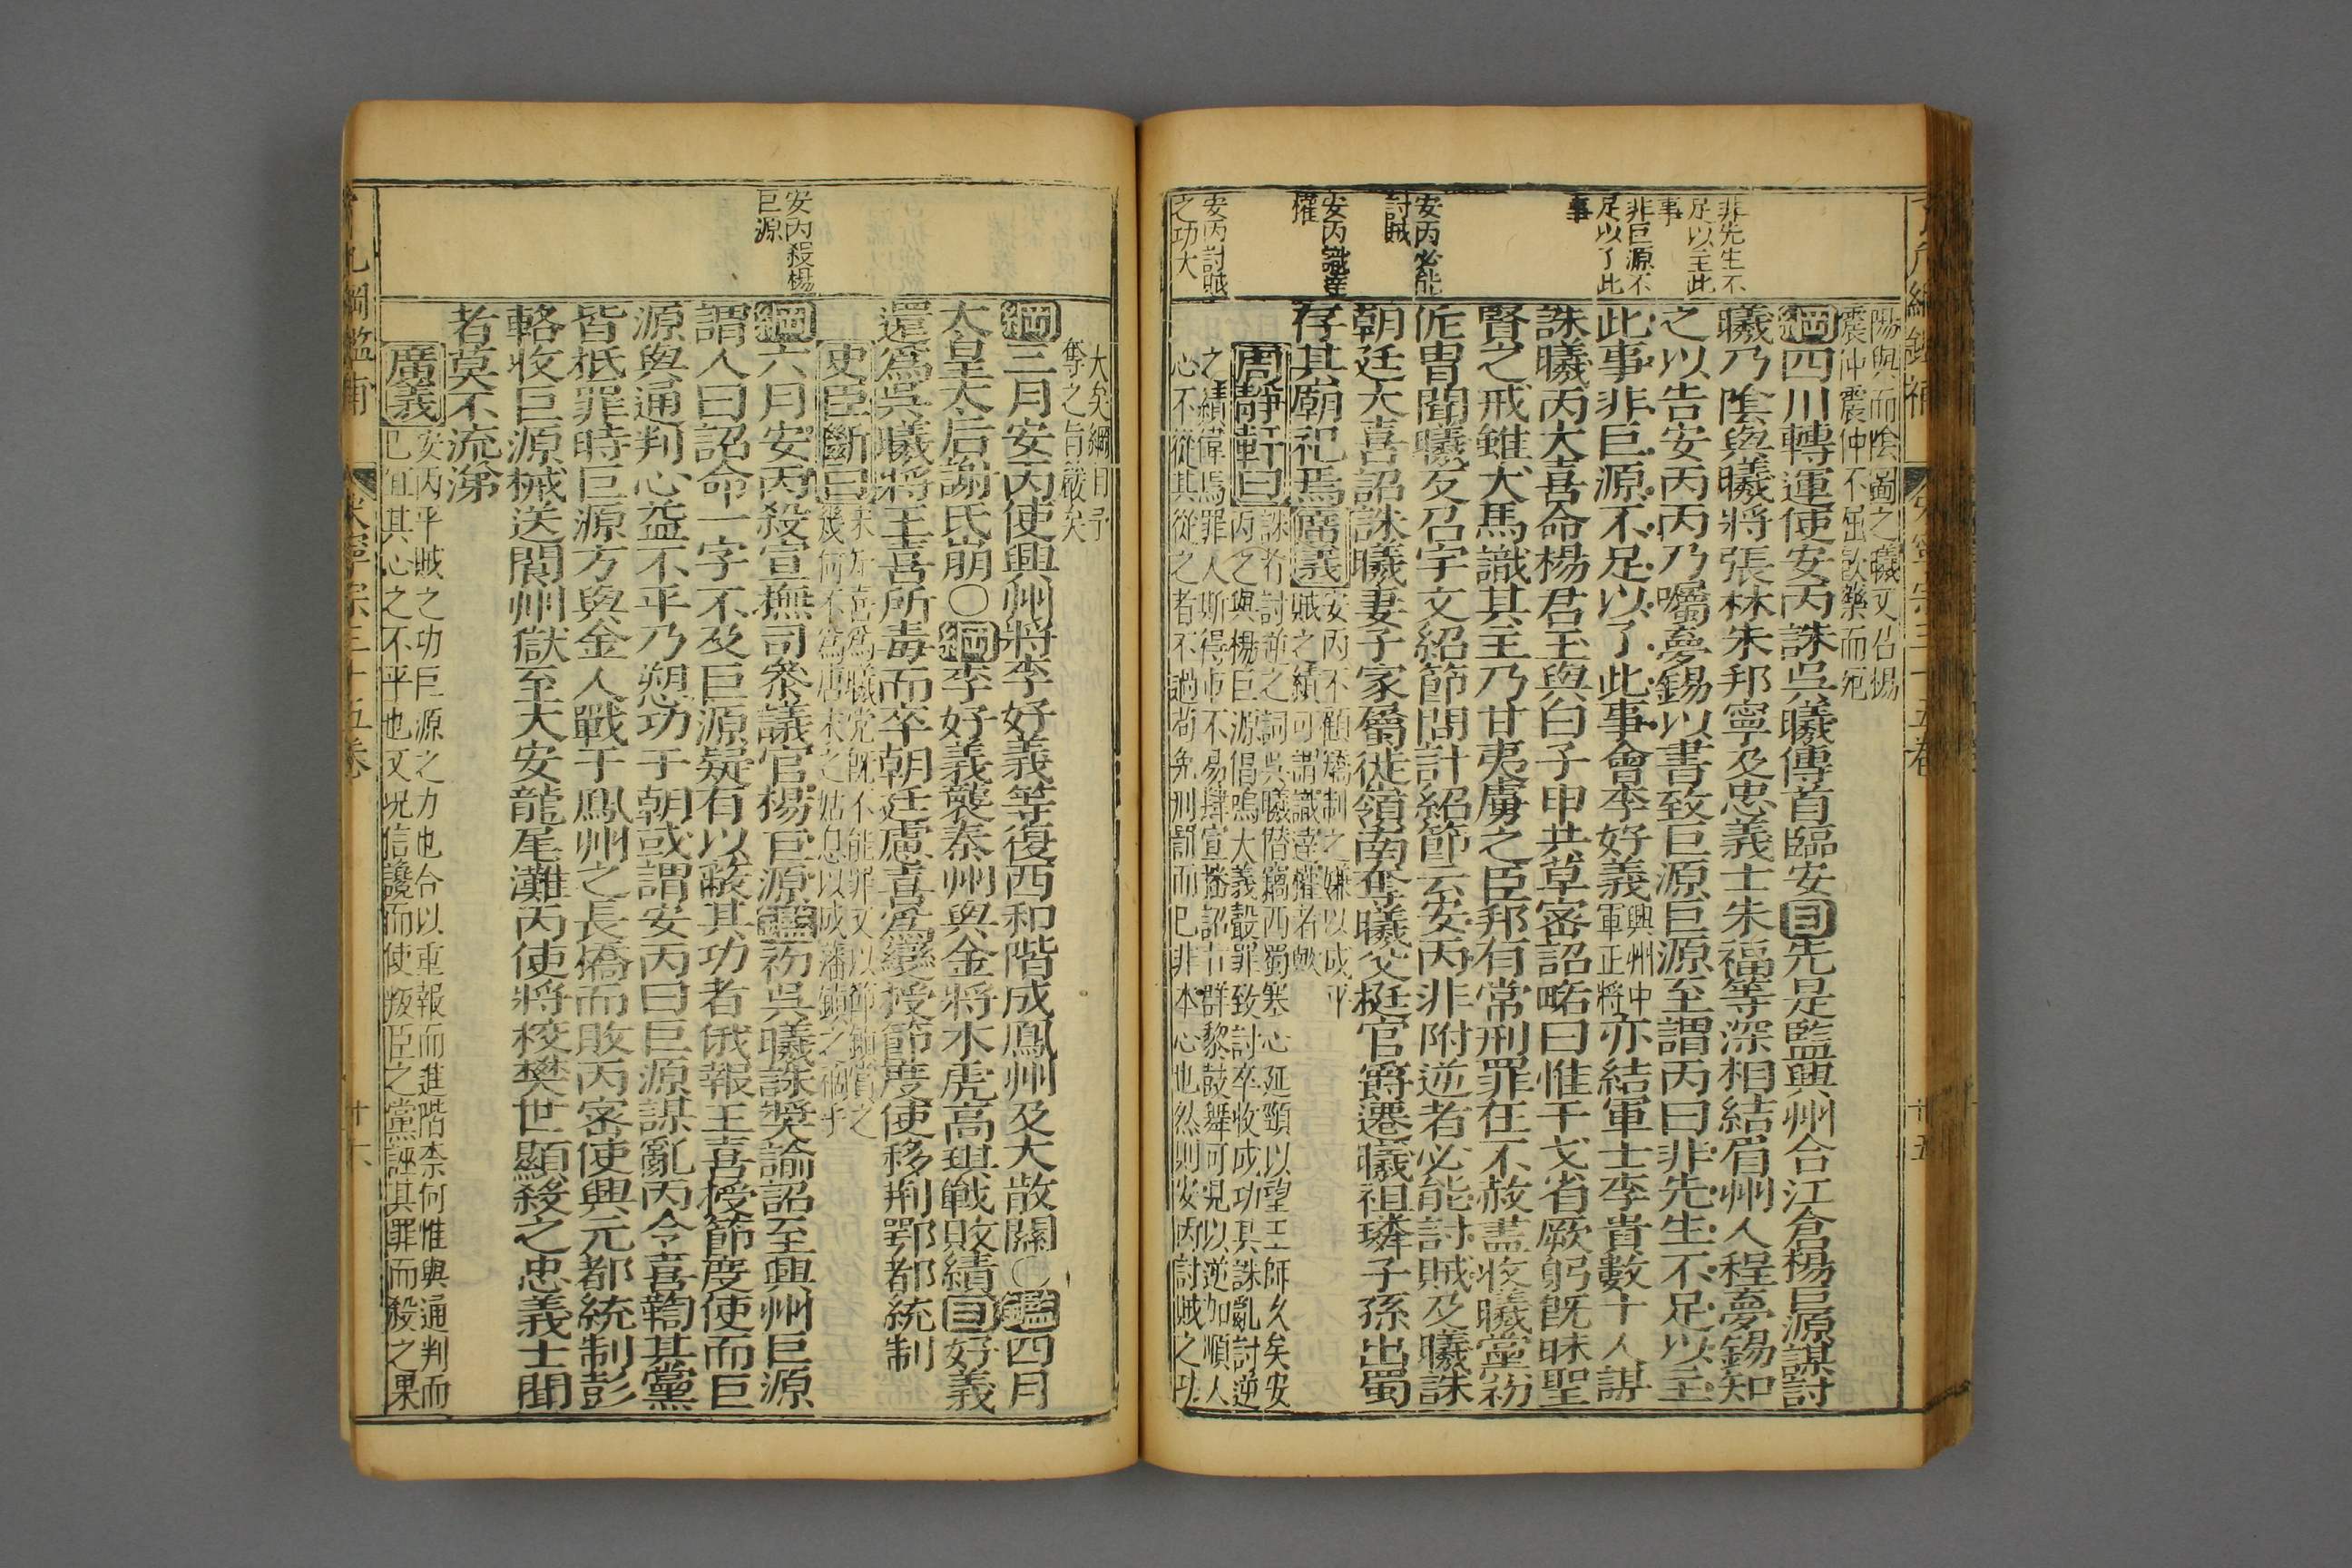 非先生不
足以主此
事
非巨源不
足以了此
事
安丙必能
討賊
安丙識達
權
安丙討賊
之功大
陽與而陰圖之曦又召楊
震仲震仲不屈飲藥而死
綱四川轉運使安丙誅吳曦傳首臨安目先是監興州合江倉楊巨源謀討
曦乃陰與曦將張林朱邦寧及忠義士朱福等深相結眉州人程夢錫知
之以告安丙丙乃囑夢錫以書致巨源巨源至謂丙曰非先生不足以主
此事非巨源不足以了此事會李好義興州中軍正將亦結軍士李貴數十人謀
誅曦丙大喜命楊君玉與白子申共草密詔略曰惟干戈省厥躬既昧聖
賢之戒雖犬馬識其主乃甘夷虜之臣邦有常刑罪在不赦蓋收曦黨初
侂胄聞曦反召宇文紹節問計紹節云安丙非附逆者必能討賊及曦誅
朝廷大喜詔誅曦妻子家屬徙嶺南奪曦父挺官爵遷曦祖璘子孫出蜀
存其廟祀焉廣義安丙不顧矯制之嫌以成平
賊之績可謂識達權者歟
周靜軒曰誅者討逆之詞吳曦僭竊西蜀寒心延頸以望王師久矣安
丙之與楊巨源倡鳴大義殺罪致討卒收成功其誅亂討逆
之績偉焉罪人斯得市不易肆宣播詔旨群黎鼓舞可見以逆加順人
心不從其從之者不過尚免刑罰而已非本心也然則安丙討賊之功
宋寧宗三十五卷
廿五
大矣綱目予
奪之旨嚴矣
綱三月安丙使興州將李好義等復西和階成鳳州及大散關○鑑四月
太皇太后謝氏崩○綱李好義襲秦州與金將术虎高琪戰敗績目好義
還為吳曦將王喜所毒而卒朝廷慮喜為變授節度使移荆鄂都統制
史臣斷曰宋方喜為曦党既不能罪又以節鎮賞之
幾何不為唐末之姑息以成藩鎮之禍乎
安丙殺楊
巨源
綱六月安丙殺宣撫司參議官楊巨源鑑初吳曦誅獎諭詔至興州巨源
謂人曰詔命一字不及巨源疑有以蔽其功者俄報王喜授節度使而巨
源與通判心益不平乃愬功于朝或謂安丙曰巨源謀亂丙令喜鞫其黨
皆抵罪時巨源方與金人戰于鳳州之長橋而敗丙密使興元都統制彭
輅收巨源械送閬州獄至大安龍尾灘丙使將校樊世顯殺之忠義士聞
者莫不流涕
廣義安丙平賊之功巨源之力也合以重報而進階柰何惟與通判而
已宜其心之不平也又況信讒而使叛臣之黨誣其罪而殺之果
宋寧宗三十五卷
廿六